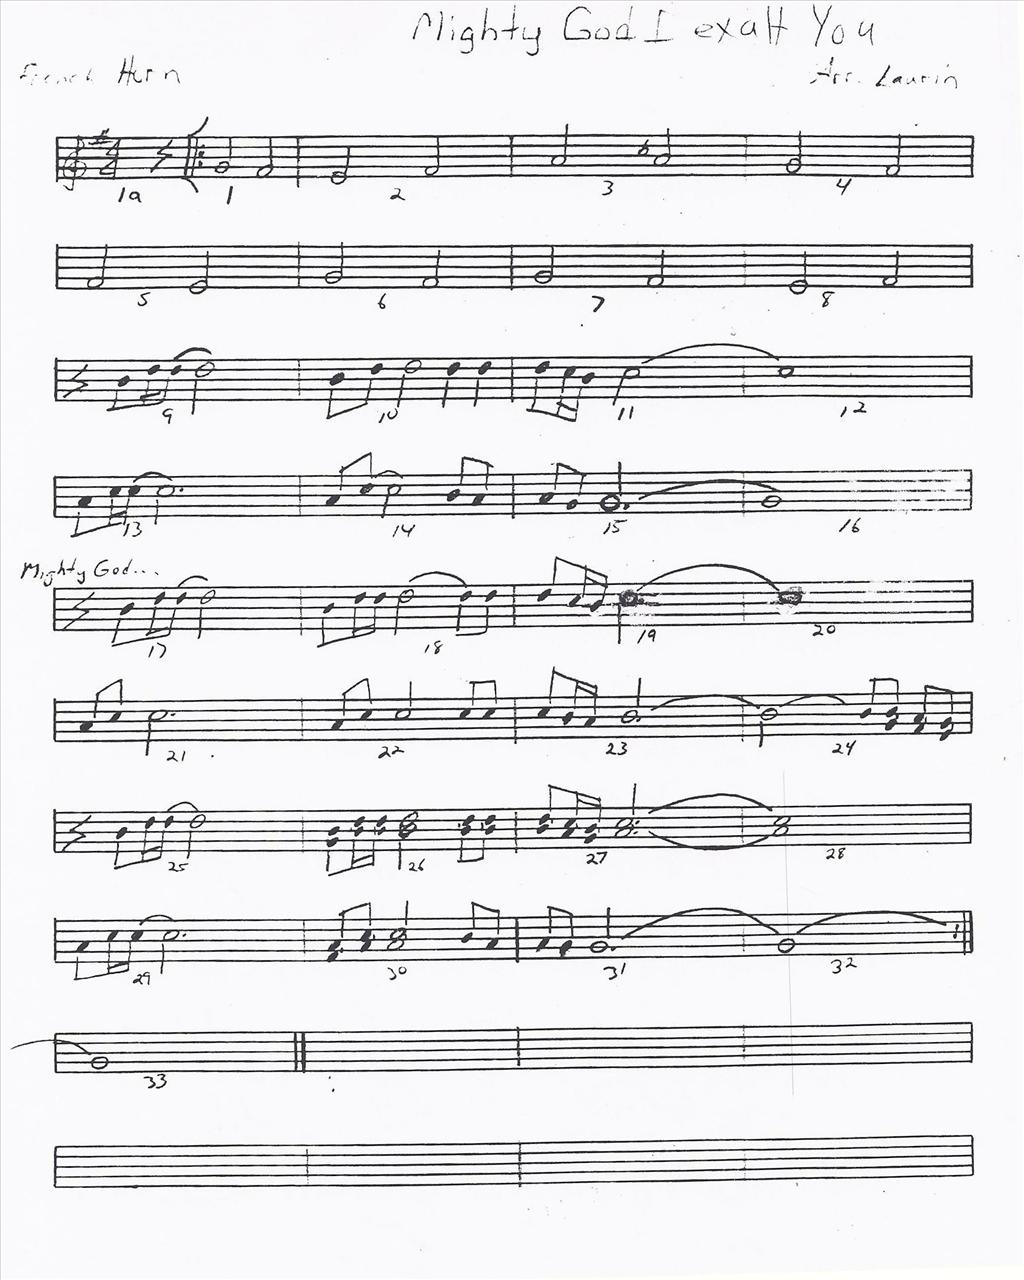 Mighty God I exalt You
French Horn
Arr. Laurin
1a 1 2 3 4
5 6 7 8
9 10 11 12
13 14 15 16
Mighty God...
17 18 19 20
21 22 23 24
25 26 27 28
29 30 31 32
33